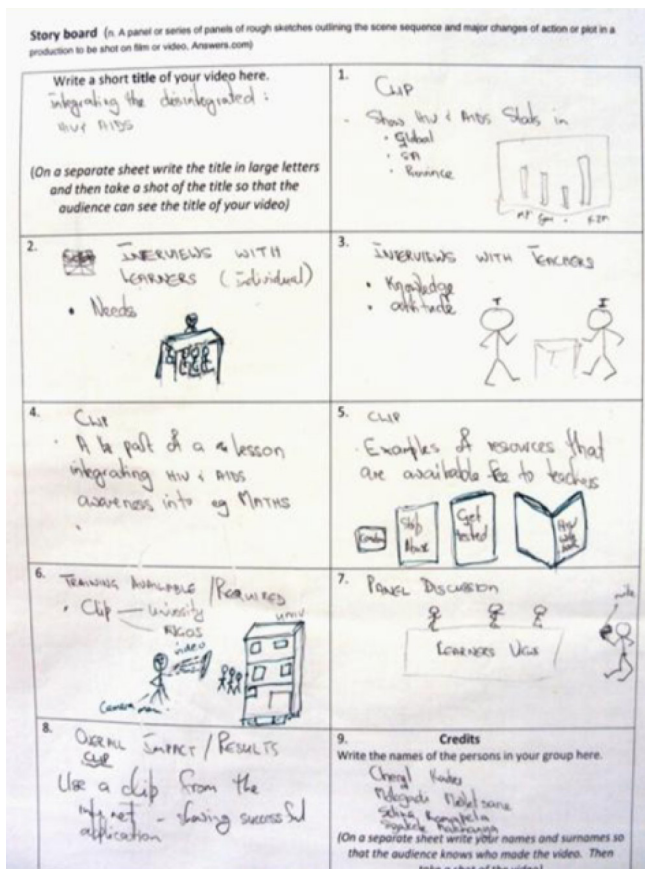 Story board (n. A panel or series of panels of rough sketches outlining the scene sequence and major changes of action or plot in a
production to be shot on film or video. Answers.com)
Write a short title of your video here.
integrating the disintegrated :
HIV & AIDS
(On a separate sheet write the title in large letters
and then take a shot of the title so that the
audience can see the title of your video)
1.
CLIP
Show HIV & AIDS Stats in
• Global
• SA
• Province
KZN
2.
INTERVIEWS WITH
LEARNERS (individual)
• Needs
3.
INTERVIEWS WITH TEACHERS
• Knowledge
• attitude
T I
4.
CLIP
• A part of a lesson
integrating HIV & AIDS
awareness into eg MATHS
5. CLIP
. Examples of resources that
are available fee to teachers
Condom
Stop
Abuse
Get
tested
HIV
6.
TRAINING AVAILABLE / REQUIRED
• Clip — university
NGOs
video
univ
Camera man
7.
PANEL DISCUSSION
LEARNERS VIEW
8.
OVERALL IMPACT / RESULTS
CLIP
Use a clip from the
internet – showing successful
application
9. Credits
Write the names of the persons in your group here.
Cheryl
(On a separate sheet write your names and surnames so
that the audience knows who made the video. Then
take a shot of the video)